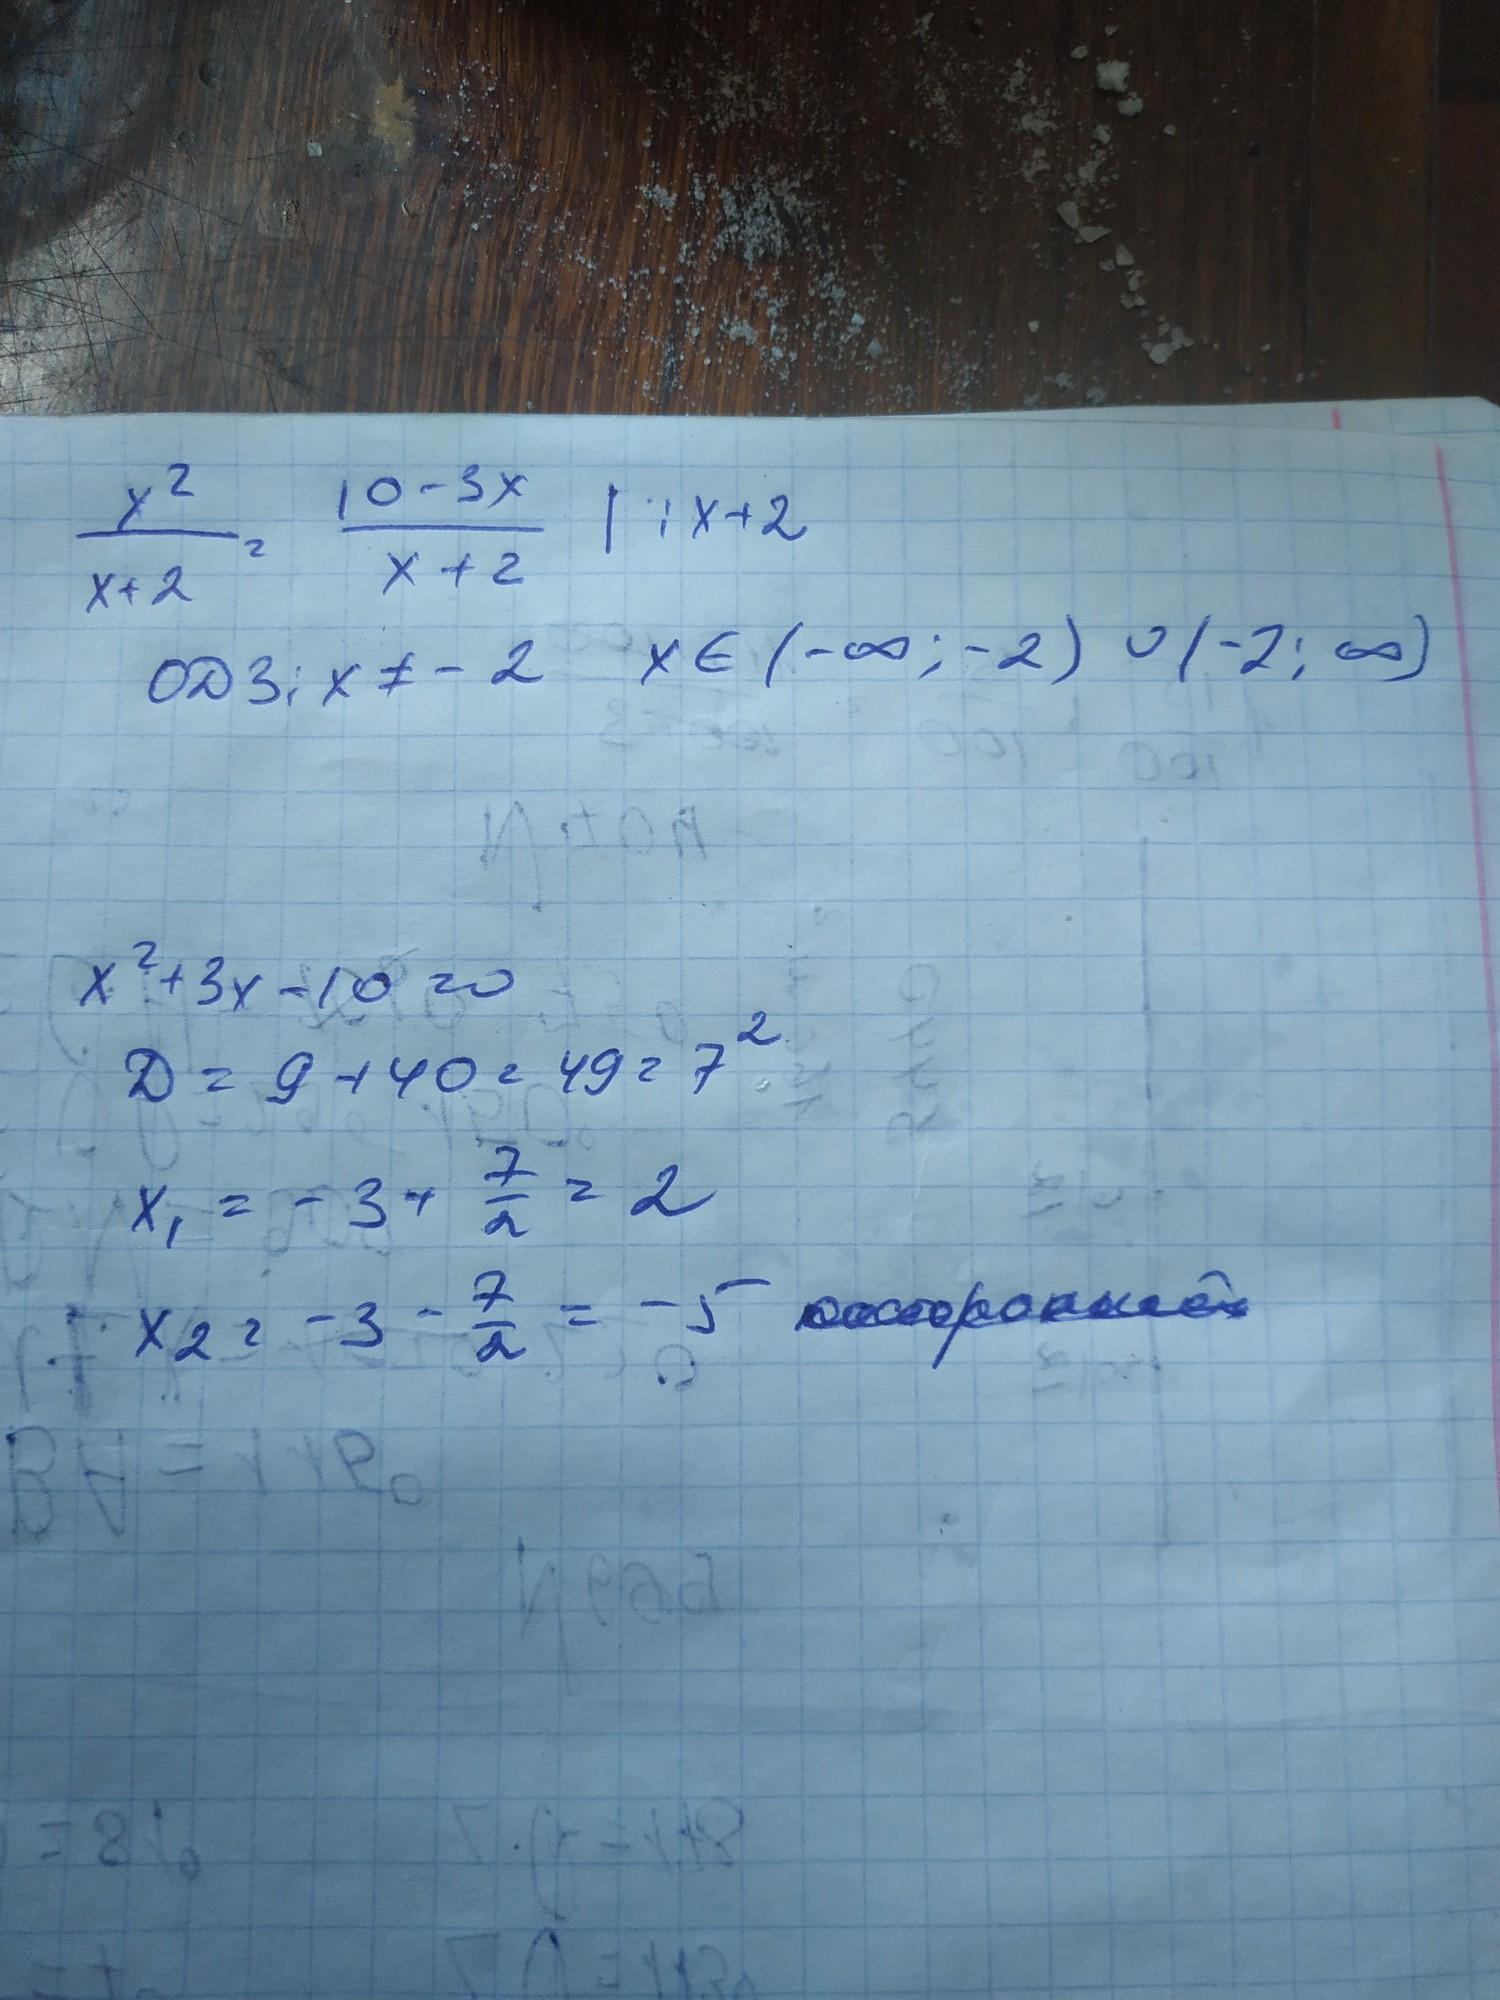 x²/x+2 = 10-3x/x+2 | : x+2
ОДЗ: x ≠ -2 x ∈ (-∞; -2) ∪ (-2; ∞)
x²+3x-10=0
D = 9+40=49=7²
x₁ = -3+ 7/2 = 2
x₂ = -3 - 7/2 = -5